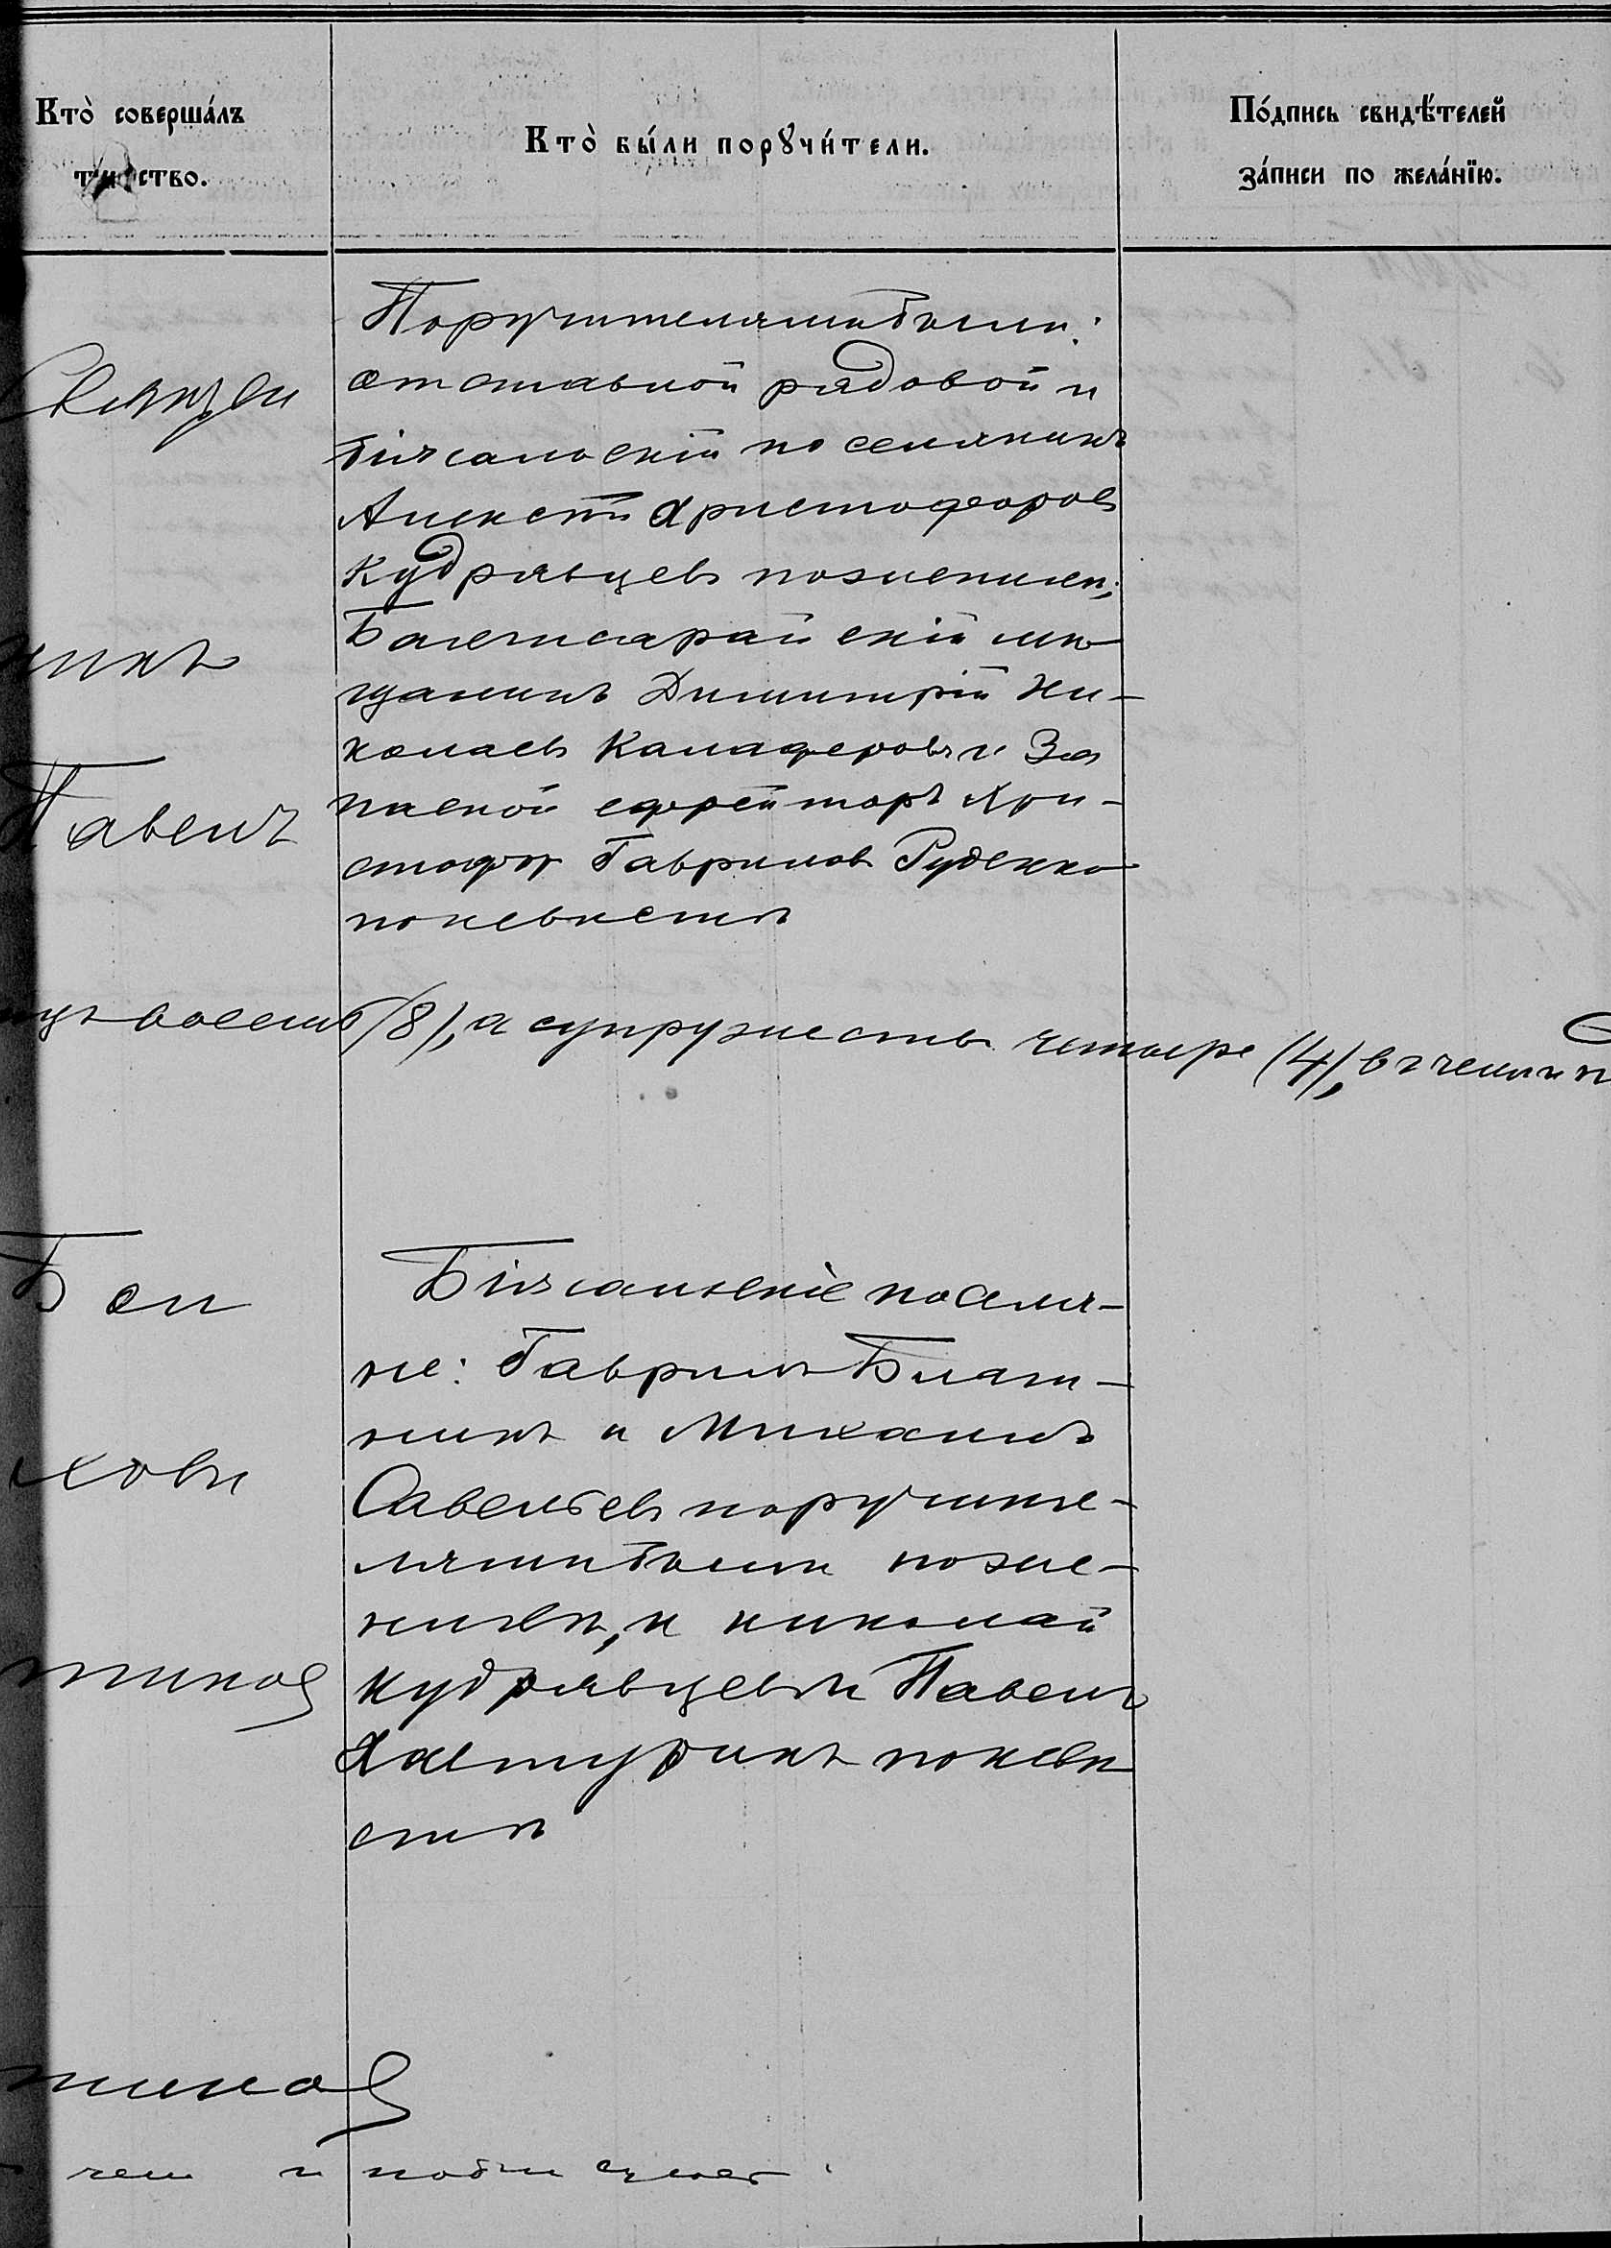 Кто̀ соверша́лъ
Кто̀ бы́ли порꙋчи́тели.
По́дпись свидѣ́телей
за́писи по жела́нїю.
Поручителями были:
отставной рядовой и
біясальскій поселянинъ
Алексѣй Христофоровъ
Кудрявцевъ по женихѣ;
Бахчисарайскій мѣ-
щанинъ Димитрій Ни-
колаевъ Калаферовъ и За
пасной ефрейторъ Хри-
стофоръ Гавриловъ Руденко
по невѣстѣ
никъ
Павелъ
восемь (8), а супружествъ четыре (4), в чемъ и п
Біясальскіе поселя-
не: Гавріилъ Блат-
никъ и Михаилъ
Савельевъ поручите-
лями были по же-
нихѣ, и Николай
Кудрявцевъ и Павелъ
по невѣ
стѣ
чемъ и подписуюсь.